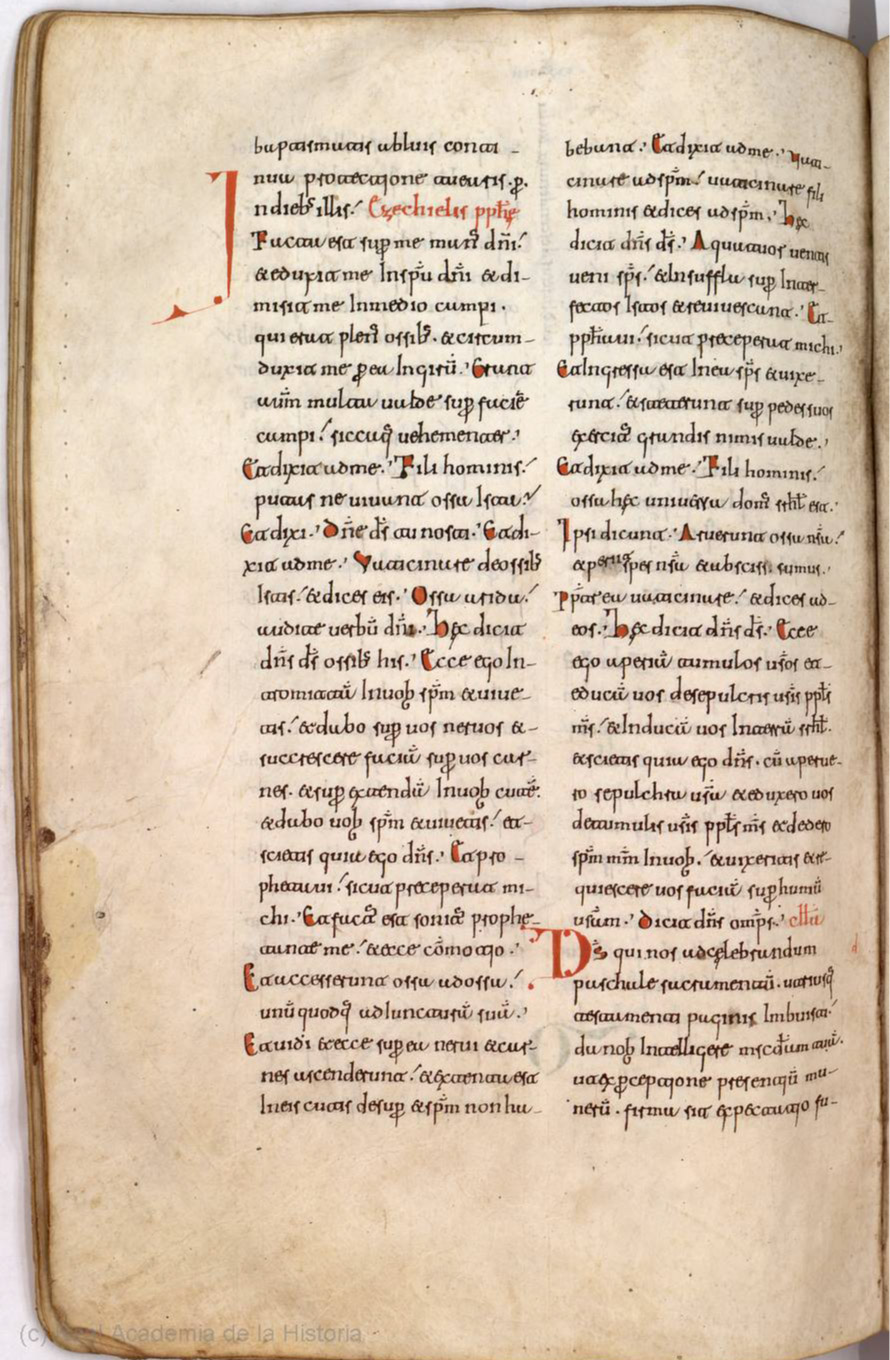 baptismatis abluis conti-
nua protectione tuearis. p̄.
In diebs illis. Ezechielis pphę
Facta est sup me man͛ dn̄i.
& eduxit me In sp̄u dn̄i & di-
misit me In medio campi.
qui erat plen͛ ossibs. & circum-
duxit me p ea In girū. Erant
autm̄ multa ualde sup faciē
campi. siccaq͛ uehementer.
Et dixit ad me. Fili hominis.
putas ne uiuunt ossa Ista.
Et dixi. Dn̄e ds̄ tu nosti. Et di-
xit ad me. Vaticinare de ossibs
Istis. & dices eis. Ossa arida.
audite uerbū dn̄i. Hęc dicit
dn̄s ds̄ ossibs his. Ecce ego In-
tromittā In uob sp̄m & uiue-
tis. & dabo sup uos neruos &
succrescere faciā sup uos car-
nes. & sup extendā In uob cutē.
& dabo uob sp̄m & uiuetis. et
scietis quia ego dn̄s. Et pro-
phetaui. sicut preceperat mi-
chi. Et fact͛ est sonit͛ prophe-
tante me. & ecce cōmotio.
Et accesserunt ossa ad ossa.
unū quodq͛ ad Iuncturā suā.
Et uidi & ecce sup ea nerui & car-
nes ascenderunt. & extenta est
In eis cutis desup & sp̄m non ha-
bebant. Et dixit ad me. Vati-
cinare ad sp̄m. uaticinare fili
hominis & dices ad sp̄m. Hęc
dicit dn̄s ds̄. A quatuor uentis
ueni sp̄s. & Insuffla sup Inter-
fectos Istos & reuiuescant. Et
pphtaui. sicut preceperat michi.
Et Ingressu est In ea sp̄s & uixe-
runt. & steterunt sup pedes suos
exercit͛ grandis nimis ualde.
Et dixit ad me. Fili hominis.
ossa hęc uniuersa dom͛ srhl̄ est.
Ipsi dicunt. Aruerunt ossa nsā.
& perit spes nsā & abscissi sumus.
Pptrea uaticinare. & dices ad
eos. Hęc dicit dn̄s ds̄. Ecce
ego aperiā tumulos usōs et
educā uos de sepulcris usīs ppls̄
ms̄. & Inducā uos In terrā srhl̄.
& scietis quia ego dn̄s. cū aperue-
ro sepulchra usā & eduxero uos
de tumulis usīs ppls̄ ms̄ & dedero
sp̄m mm̄ In uob. & uixeritis & re-
quiescere uos faciā sup humū
usām. Dicit dn̄s omps̄. cltā
Ds̄ qui nos ad celebrandum
paschale sacramentū. utriusq͛
testamenti paginis Imbuisti.
da nob Intelligere mscdiam tuā.
ut ex pceptione presentiū mu-
nerū. firma sit expectatio fu-
(c) Real Academia de la Historia